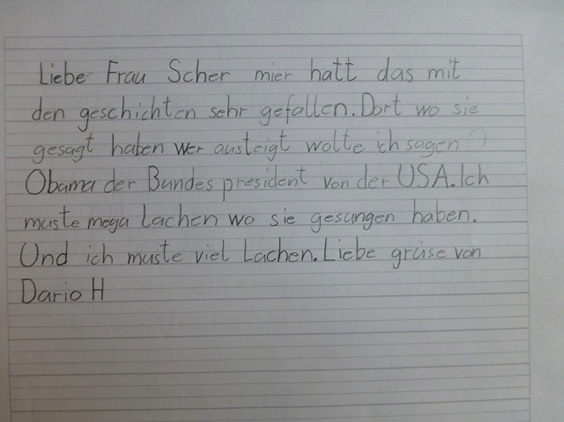 Liebe Frau Scher mier hatt das mit
den geschichten sehr gefallen. Dort wo sie
gesagt haben wer austeigt wolte ich sagen
Obama der Bundes president von der USA. Ich
muste mega Lachen wo sie gesungen haben.
Und ich muste viel Lachen. Liebe grüse von
Dario H